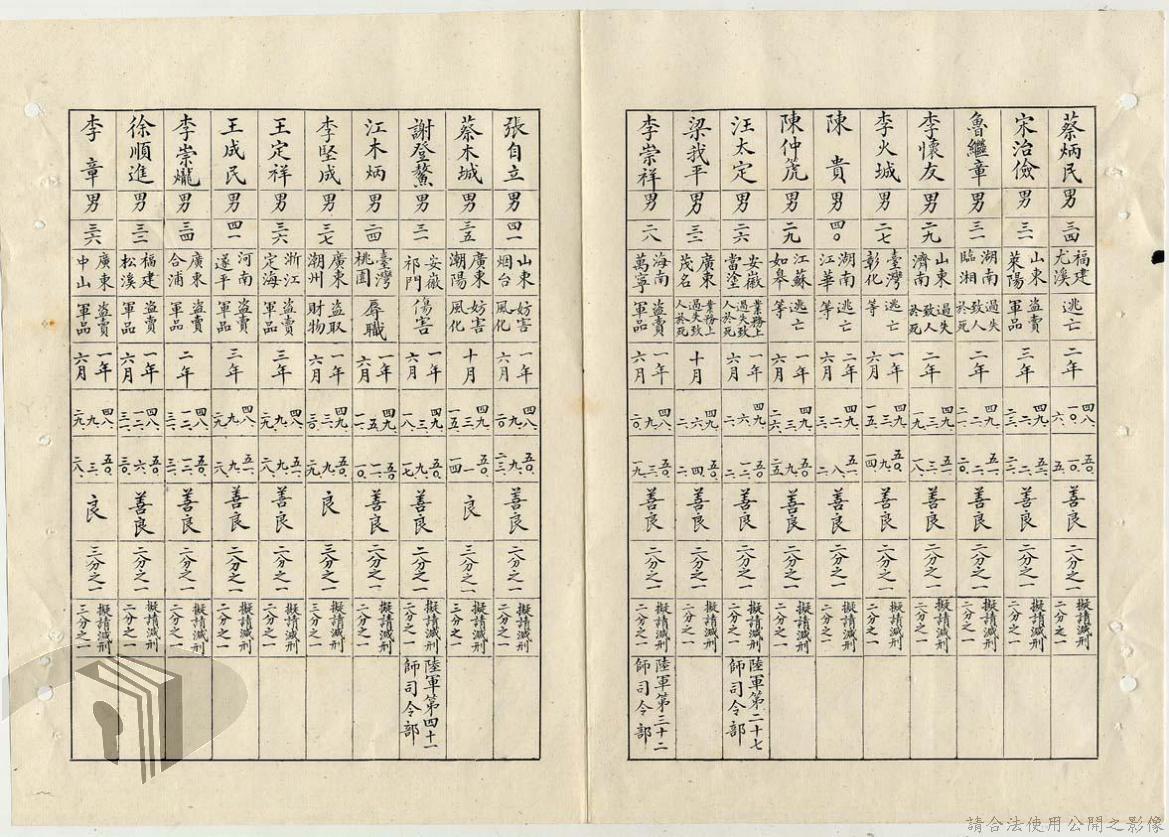 蔡炳民 男 三四 福建尤溪 逃亡 二年 四八、一〇、六、 五〇、一〇、五、 善良 二分之一 擬請減刑二分之一
宋治儉 男 三二 山東萊陽 盜賣軍品 三年 善良 二分之一 擬請減刑二分之一
魯繼章 男 三一 湖南臨湘 過失致人於死 二年 善良 二分之一 擬請減刑二分之一
李懷友 男 二九 山東濟南 過失致人於死 二年 善良 二分之一 擬請減刑二分之一
李火城 男 二七 臺灣彰化 逃亡等 一年六月 善良 二分之一 擬請減刑二分之一
陳貴 男 四〇 湖南江華 逃亡 二年三月 善良 二分之一 擬請減刑二分之一
陳仲箎 男 二九 江蘇如皋 逃亡等 一年六月 善良 二分之一 擬請減刑二分之一
汪大定 男 二六 安徽當塗 業務上過失致人於死 一年六月 善良 二分之一 擬請減刑二分之一 陸軍第二十七師司令部
梁我平 男 三三 廣東茂名 業務上過失致人於死 十月 四九、六、二、 五〇、四、二、 善良 二分之一 擬請減刑二分之一
李崇祥 男 二八 海南萬寧 盜賣軍品 一年六月 四九、九、二〇、 五〇、三、一九、 善良 二分之一 擬請減刑二分之一 陸軍第三十二師司令部
張自立 男 四一 山東烟台 妨害風化 一年 四八、九、二〇、 五〇、九、二三、 善良 二分之一 擬請減刑二分之一
蔡木城 男 三五 廣東潮陽 妨害風化 十月 四九、三、一五、 五〇、一、一四、 良 三分之一 擬請減刑三分之一
謝登鰲 男 三一 安徽祁門 傷害 一年六月 四九、三、一八、 五〇、九、一七、 善良 二分之一 擬請減刑二分之一 陸軍第四十一師司令部
江木炳 男 二四 臺灣桃園 辱職 一年六月 善良 二分之一 擬請減刑二分之一
李堅成 男 三七 廣東潮州 盜取財物 一年六月 四九、三、三〇、 五〇、九、二九、 良 三分之一 擬請減刑三分之一
王定祥 男 三六 浙江定海 盜賣軍品 三年 四八、九、二九、 五一、九、二八、 善良 二分之一 擬請減刑二分之一
王成民 男 四一 河南遂平 盜賣軍品 三年 四八、九、二九、 善良 二分之一 擬請減刑二分之一
李崇爔 男 三四 廣東合浦 盜賣軍品 二年 善良 二分之一 擬請減刑二分之一
徐順進 男 三三 福建松溪 盜賣軍品 一年六月 善良 二分之一 擬請減刑二分之一
李章 男 三六 廣東中山 盜賣軍品 一年六月 四八、九、二九、 五〇、三、二八、 良 三分之一 擬請減刑三分之一
請合法使用公開之影像